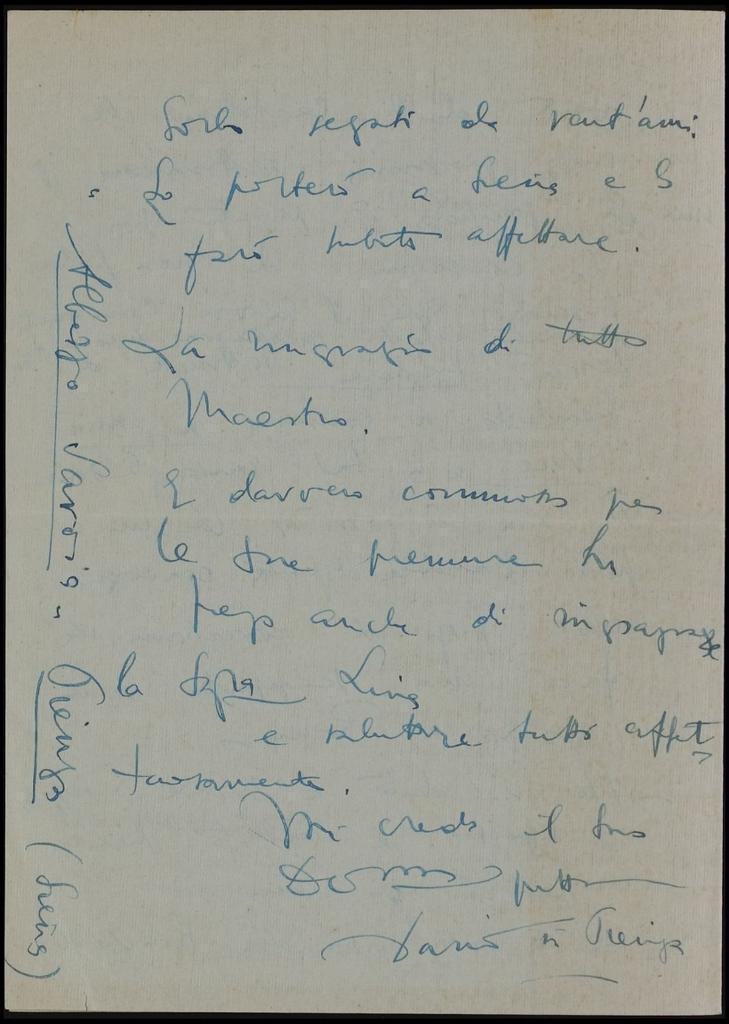 Sorbi segati da vent'anni.
Lo porterò a Siena e lo
farò subito affettare.
La ringrazio di tutto
Maestro.
E davvero commosso per
le sue premure La
prego anche di ringraziare
la Sig.ra Lina
e salutare tutti affet
tuosamente.
Mi creda il Suo
Dario in Pienza
Albergo Savoia"
Pienza (Siena)